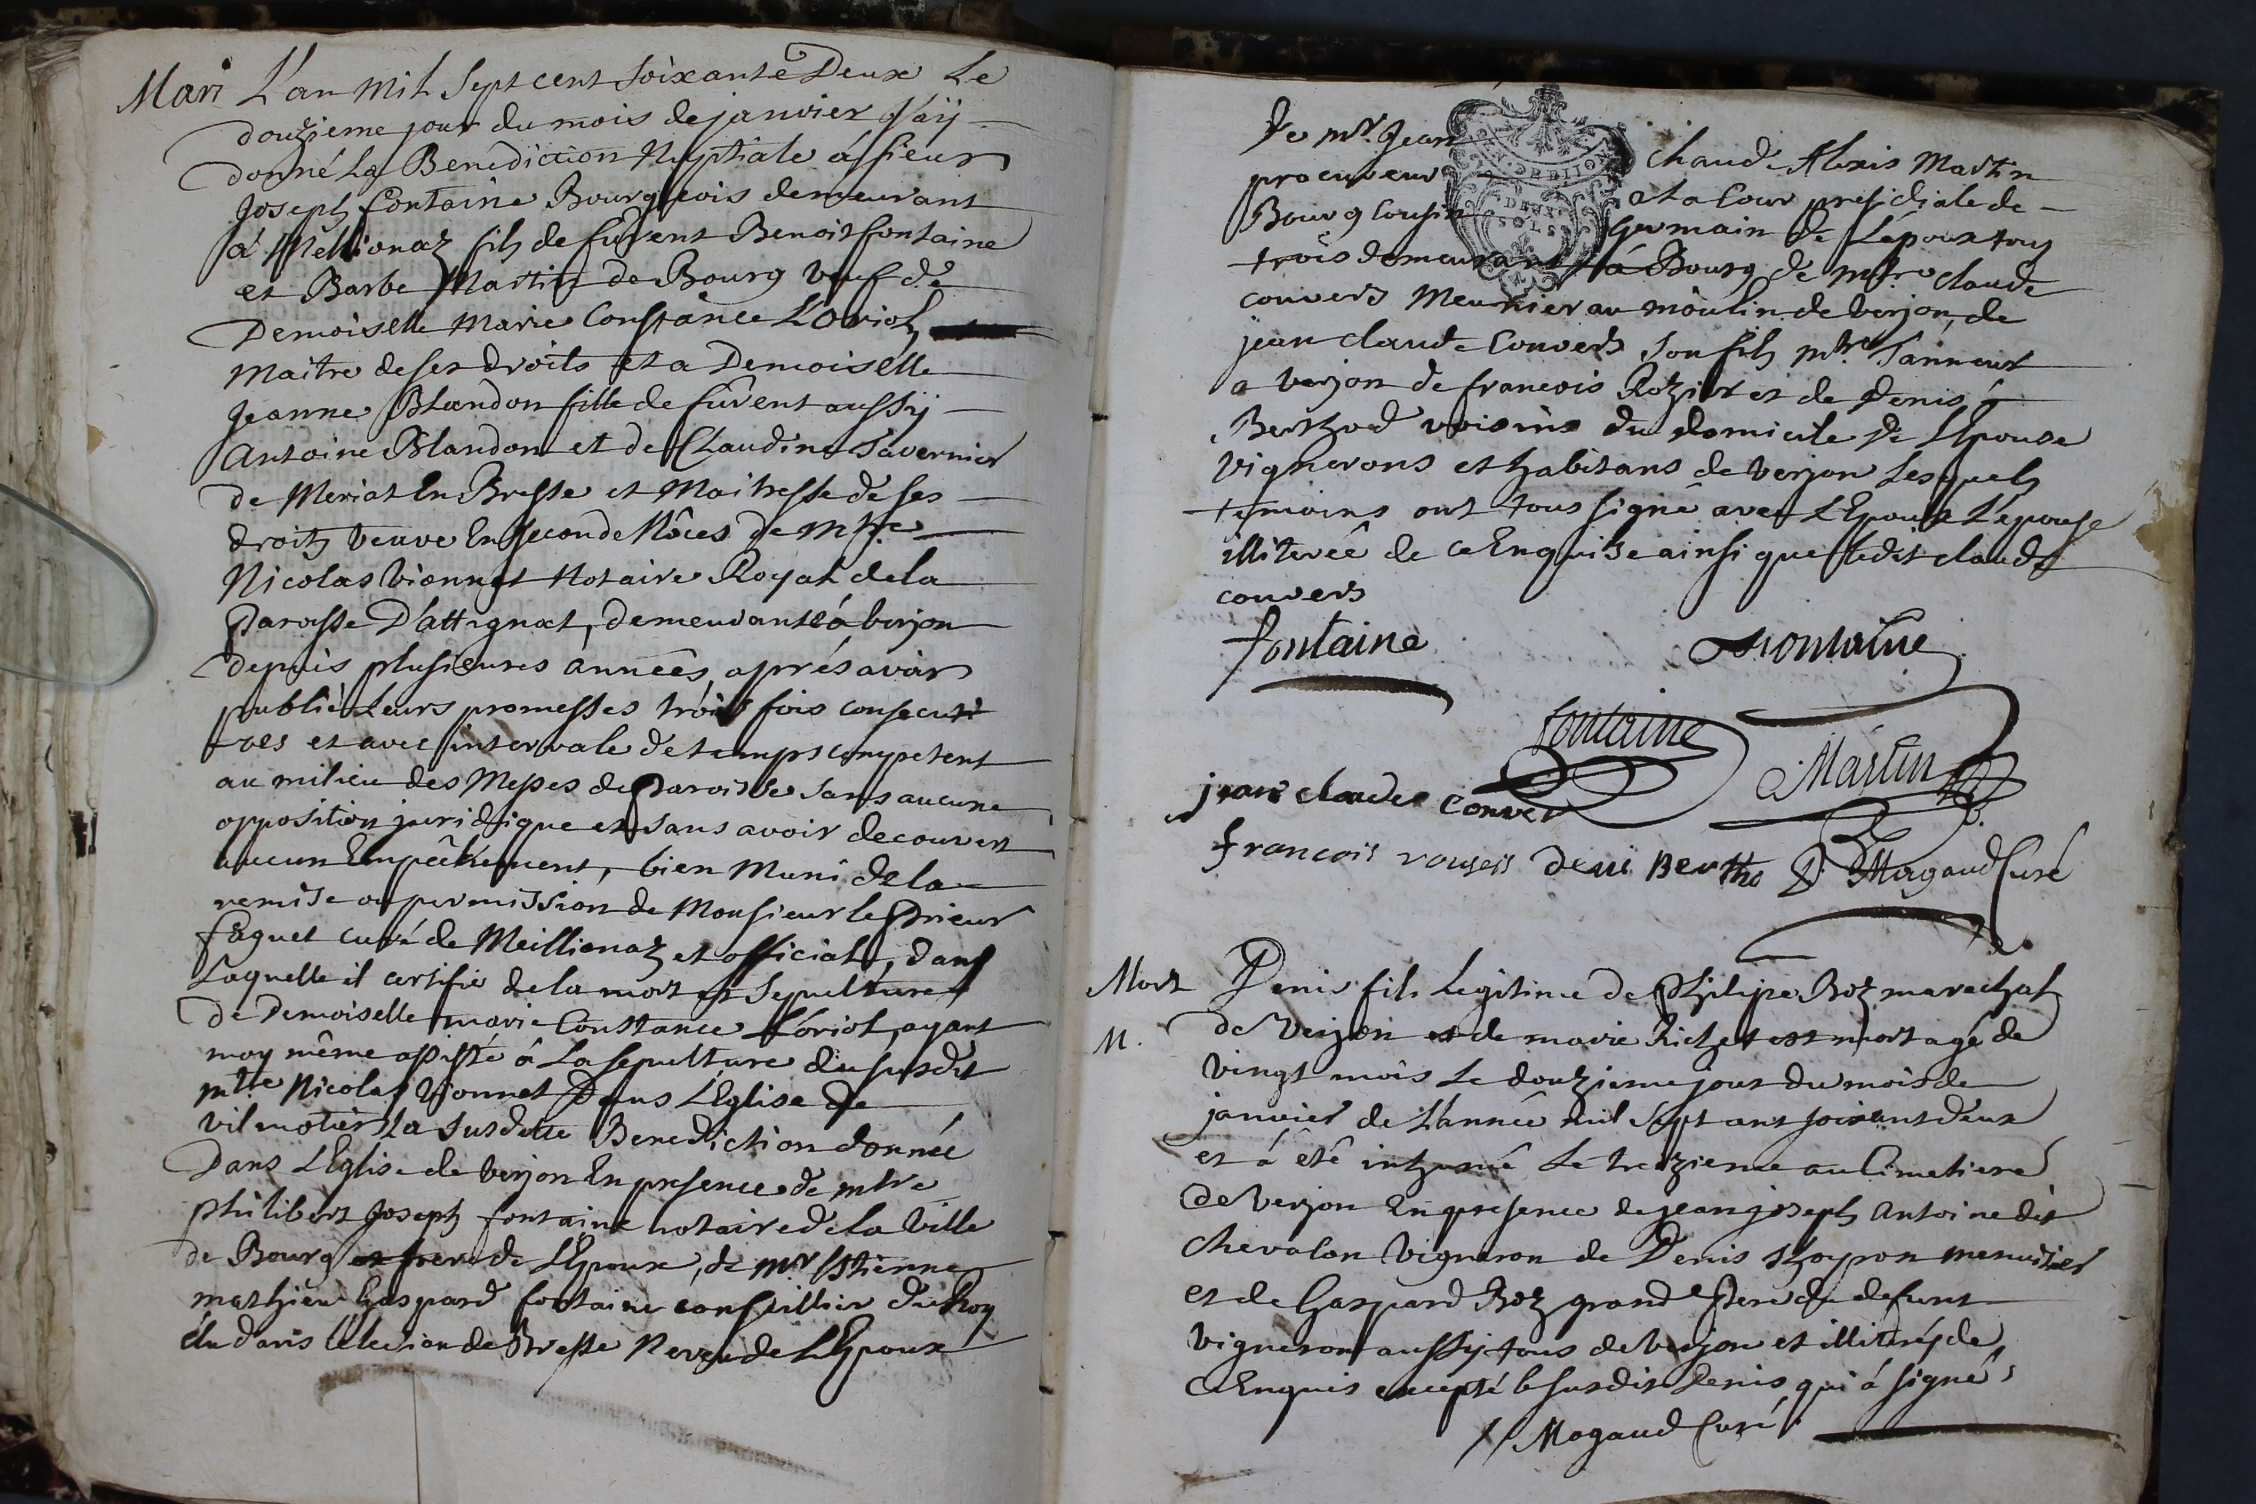 Mari L'an mil sept cent soixante Deux Le
douzieme jour du mois de janvier J'ay
donné La Benediction Nuptiale á sieur
Joseph fontaine Bourgeois demeurant
á Meillionaz fils de furent Benoit fontaine
et Barbe Martin de Bourg veuf de
Demoiselle Marie Constance L'Oriol
maitre de ses droits et a Demoiselle
Jeanne Blandon fille de furent aussy
Antoine Blandon et de Claudine Tavernier
de Meriat En Bresse et Maitresse de ses
droits veuve En seconde Nôces de mtre
Nicolas Vionnet Notaire Royal de la
Paroisse D'attignat, demeurante á verjon
depuis plusieures années, aprés avoir
publié Leurs promesses trois fois consecuti
ves et avec intervale de temps competent
au milieu des Messes de Paroisse sans aucune
opposition juridique et sans avoir decouvert
aucun Empêchement, bien Muni de la
remise ou permission de Monsieur le Prieur
faguet curé de Meillionaz et official, dans
Laquelle il certifie de la mort et Sepulture
de Demoiselle marie Constance L'oriol, ayant
moy même assisté á La sepulture du susdit
mtre Nicolas Vionnet Dans L'Eglise de
vilmotier, La susditte Benediction donnée
Dans L'Eglise de verjon En presence de mtre
philibert Joseph fontaine notaire de la ville
de Bourg et frere de L'Epoux, de mr Etienne
mathieu Gaspard fontaine conseillier du Roy
élu dans L'élection de Bresse Neveu de L'Epoux
de mr. Jean Claude Alexis Martin
procureur et a Cour presidiale de
Bourg Cousin Germain de L'époux tous
DEUX
SOLS
trois demeurants á Bourg de mtre claude
convers Meunier au moulin de verjon, de
jean claude Convers son fils mtre Tanneur
a verjon de francois Rozier et de Denis
Berthod voisins du domicile de L'Epouse
vignerons et habitans de verjon Lesquels
temoins ont tous signé avec L'Epoux L'epouse
illiterée de ce Enquise ainsi que ledit claude
convers
fontaine
fontaine
fontaine
Martin
jean claude conver
francois rousess deni Bertho
Magaud Curé
Mort Denis fils Legitime de philipe Roz marechal
M. de Verjon et de marie Richet est mort agé de
vingt mois Le douzieme jour du mois de
janvier de L'année mil sept cent soixent deux
et á été inhumé Le treizieme au Cimetiere
de verjon En presence de jean joseph Antoine dit
chevalon vigneron de Denis Choypon menuisier
et de Gaspard Roz grand Pere du defunt
vigneron aussy tous de verjon et illiterés de
ce Enquis excepté le susdit Denis qui á signé
Magaud Curé